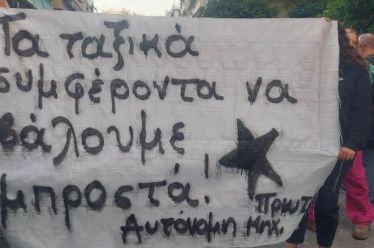 Τα ταξικά
συμφέροντα να
βάλουμε
μπροστά!
Πρωτ
Αυτόνομη Μηχ.